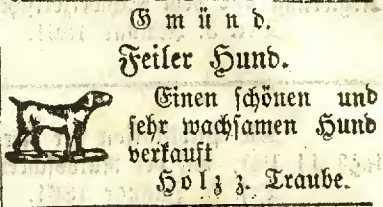 Gmünd.
Feiler Hund.
Einen schönen und
sehr wachsamen Hund
verkauft
Holz z. Traube.